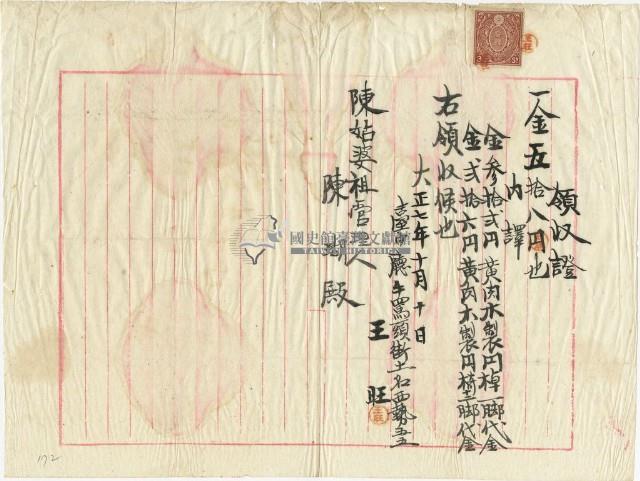 領收證
一金五拾八円也
內譯
金参拾弍円黃肉木製円棹一脚代金
金弍拾六円黃肉木製円椅子脚代金
右領收候也
大正七年十月十日
臺中廳牛罵頭街土名西勢五五
王旺
陳姑婆祖管理人
陳 殿
國史館臺灣文獻館
TAIWAN HISTORICA
172